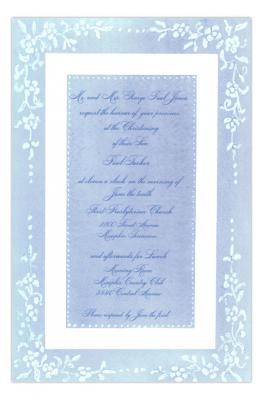 Mr. and Mrs. George Paul Jones
request the honour of your presence
at the Christening
of their Son
Paul Parker
at eleven o'clock on the morning of
June the tenth
First Presbyterian Church
Street Avenue
Memphis, Tennessee
and afterwards for Lunch
Morning Room
Memphis Country Club
Central Avenue
Please respond by June the first